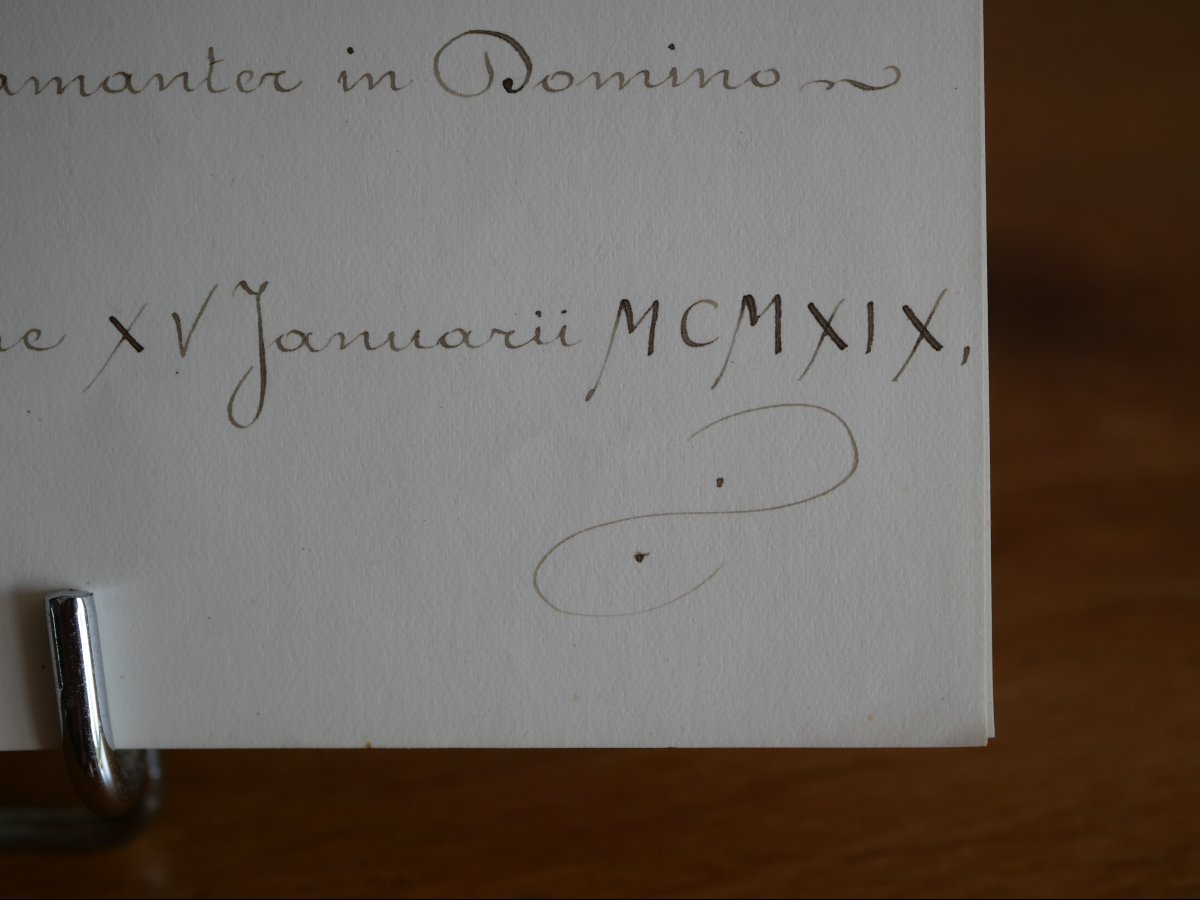 amanter in Domino
XV Januarii MCMXIX,